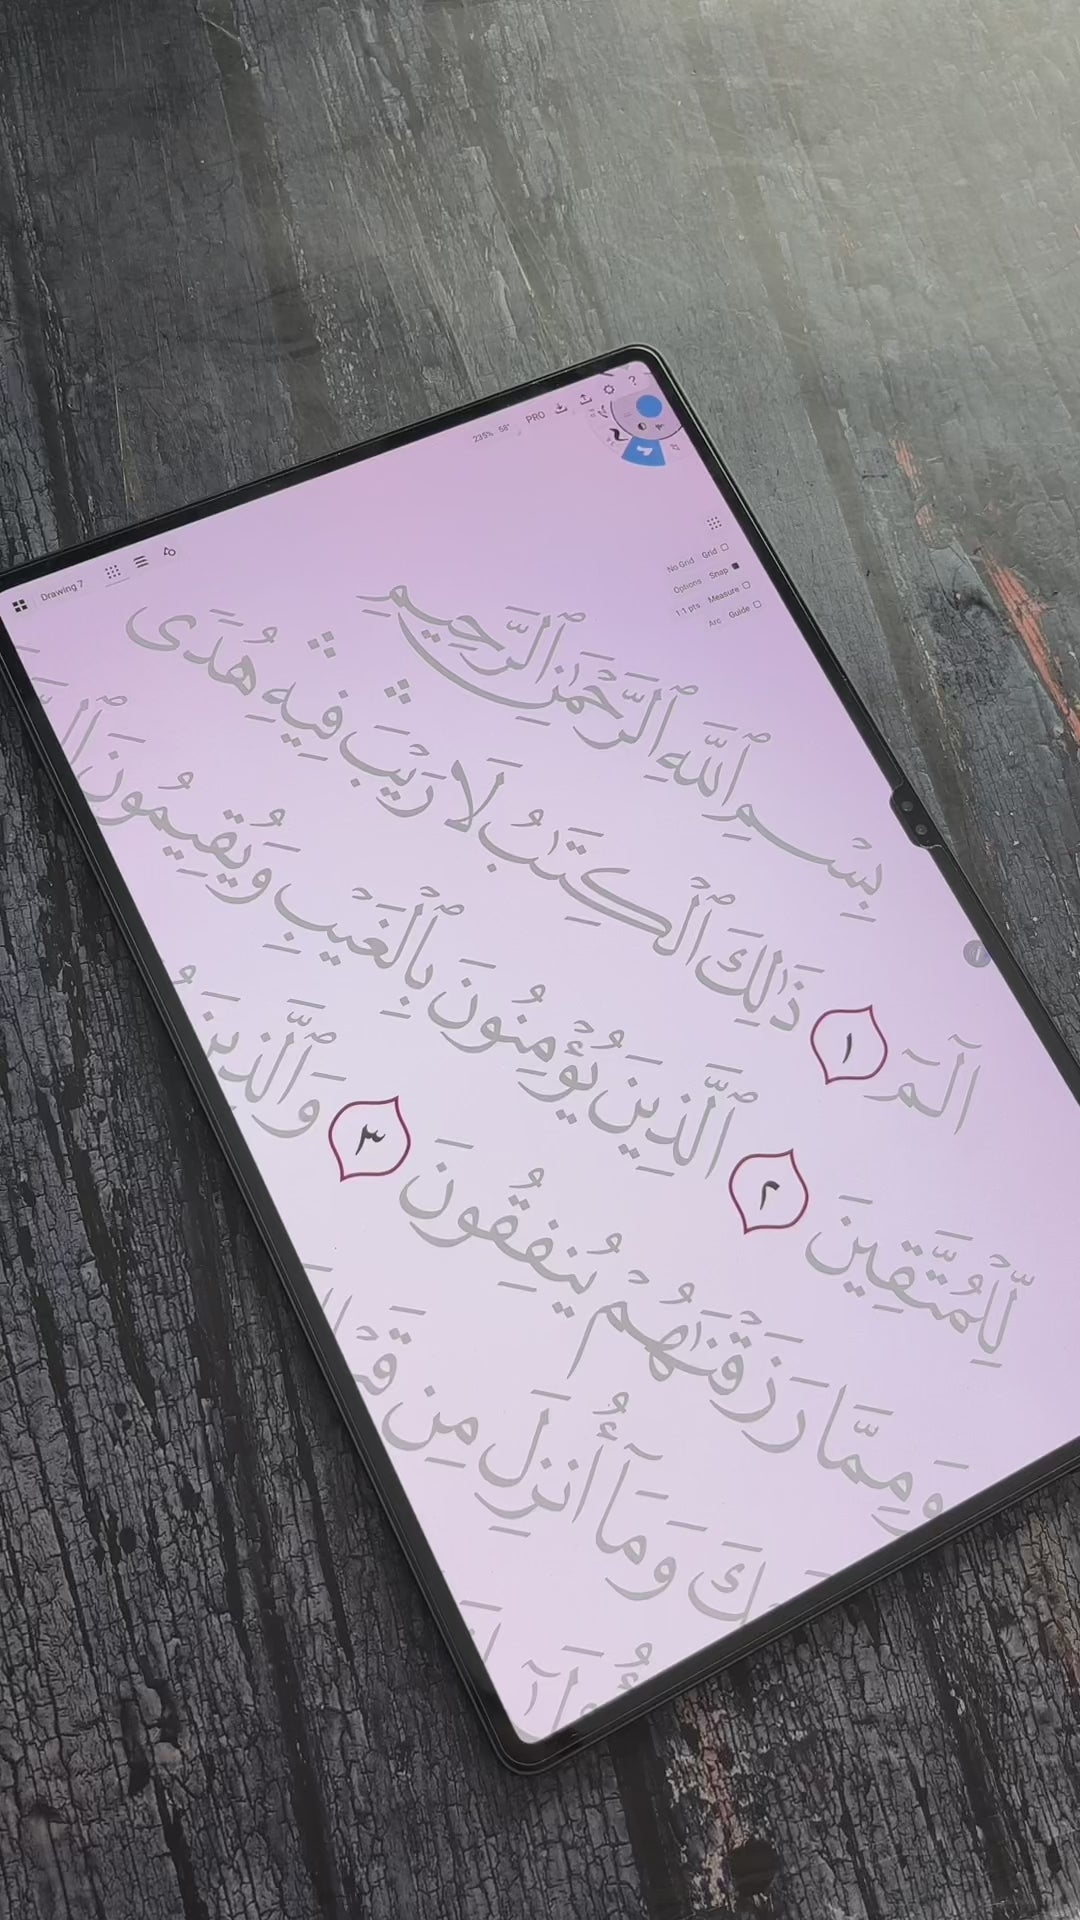 Drawing 7
235% 58°
PRO
?
No Grid Grid
Options Snap
1:1 pts Measure
Arc Guide
بِسْمِ ٱللَّهِ ٱلرَّحْمَٰنِ ٱلرَّحِيمِ
الٓمٓ ١ ذَٰلِكَ ٱلْكِتَٰبُ لَا رَيْبَ ۛ فِيهِ ۛ هُدًى
لِّلْمُتَّقِينَ ٢ ٱلَّذِينَ يُؤْمِنُونَ بِٱلْغَيْبِ وَيُقِيمُونَ
وَمِمَّا رَزَقْنَٰهُمْ يُنفِقُونَ ٣ وَٱلَّذِينَ
كَ وَمَآ أُنزِلَ مِن